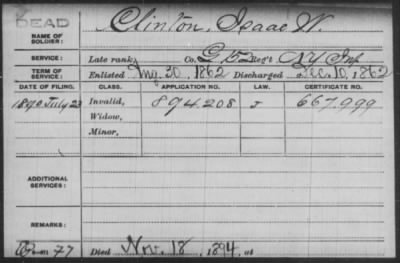 DEAD
NAME OF SOLDIER: Clinton, Isaac W.
SERVICE: Late rank, Co. G 52 Reg't N.Y. Inf
TERM OF SERVICE: Enlisted 30, 1862 Discharged Dec. 10, 1862
DATE OF FILING. CLASS. APPLICATION NO. LAW. CERTIFICATE NO.
1890 July 23 Invalid, 894.208 J 667.999
Widow,
Minor,
ADDITIONAL SERVICES:
REMARKS:
77 Died Nov. 18, 1894, at